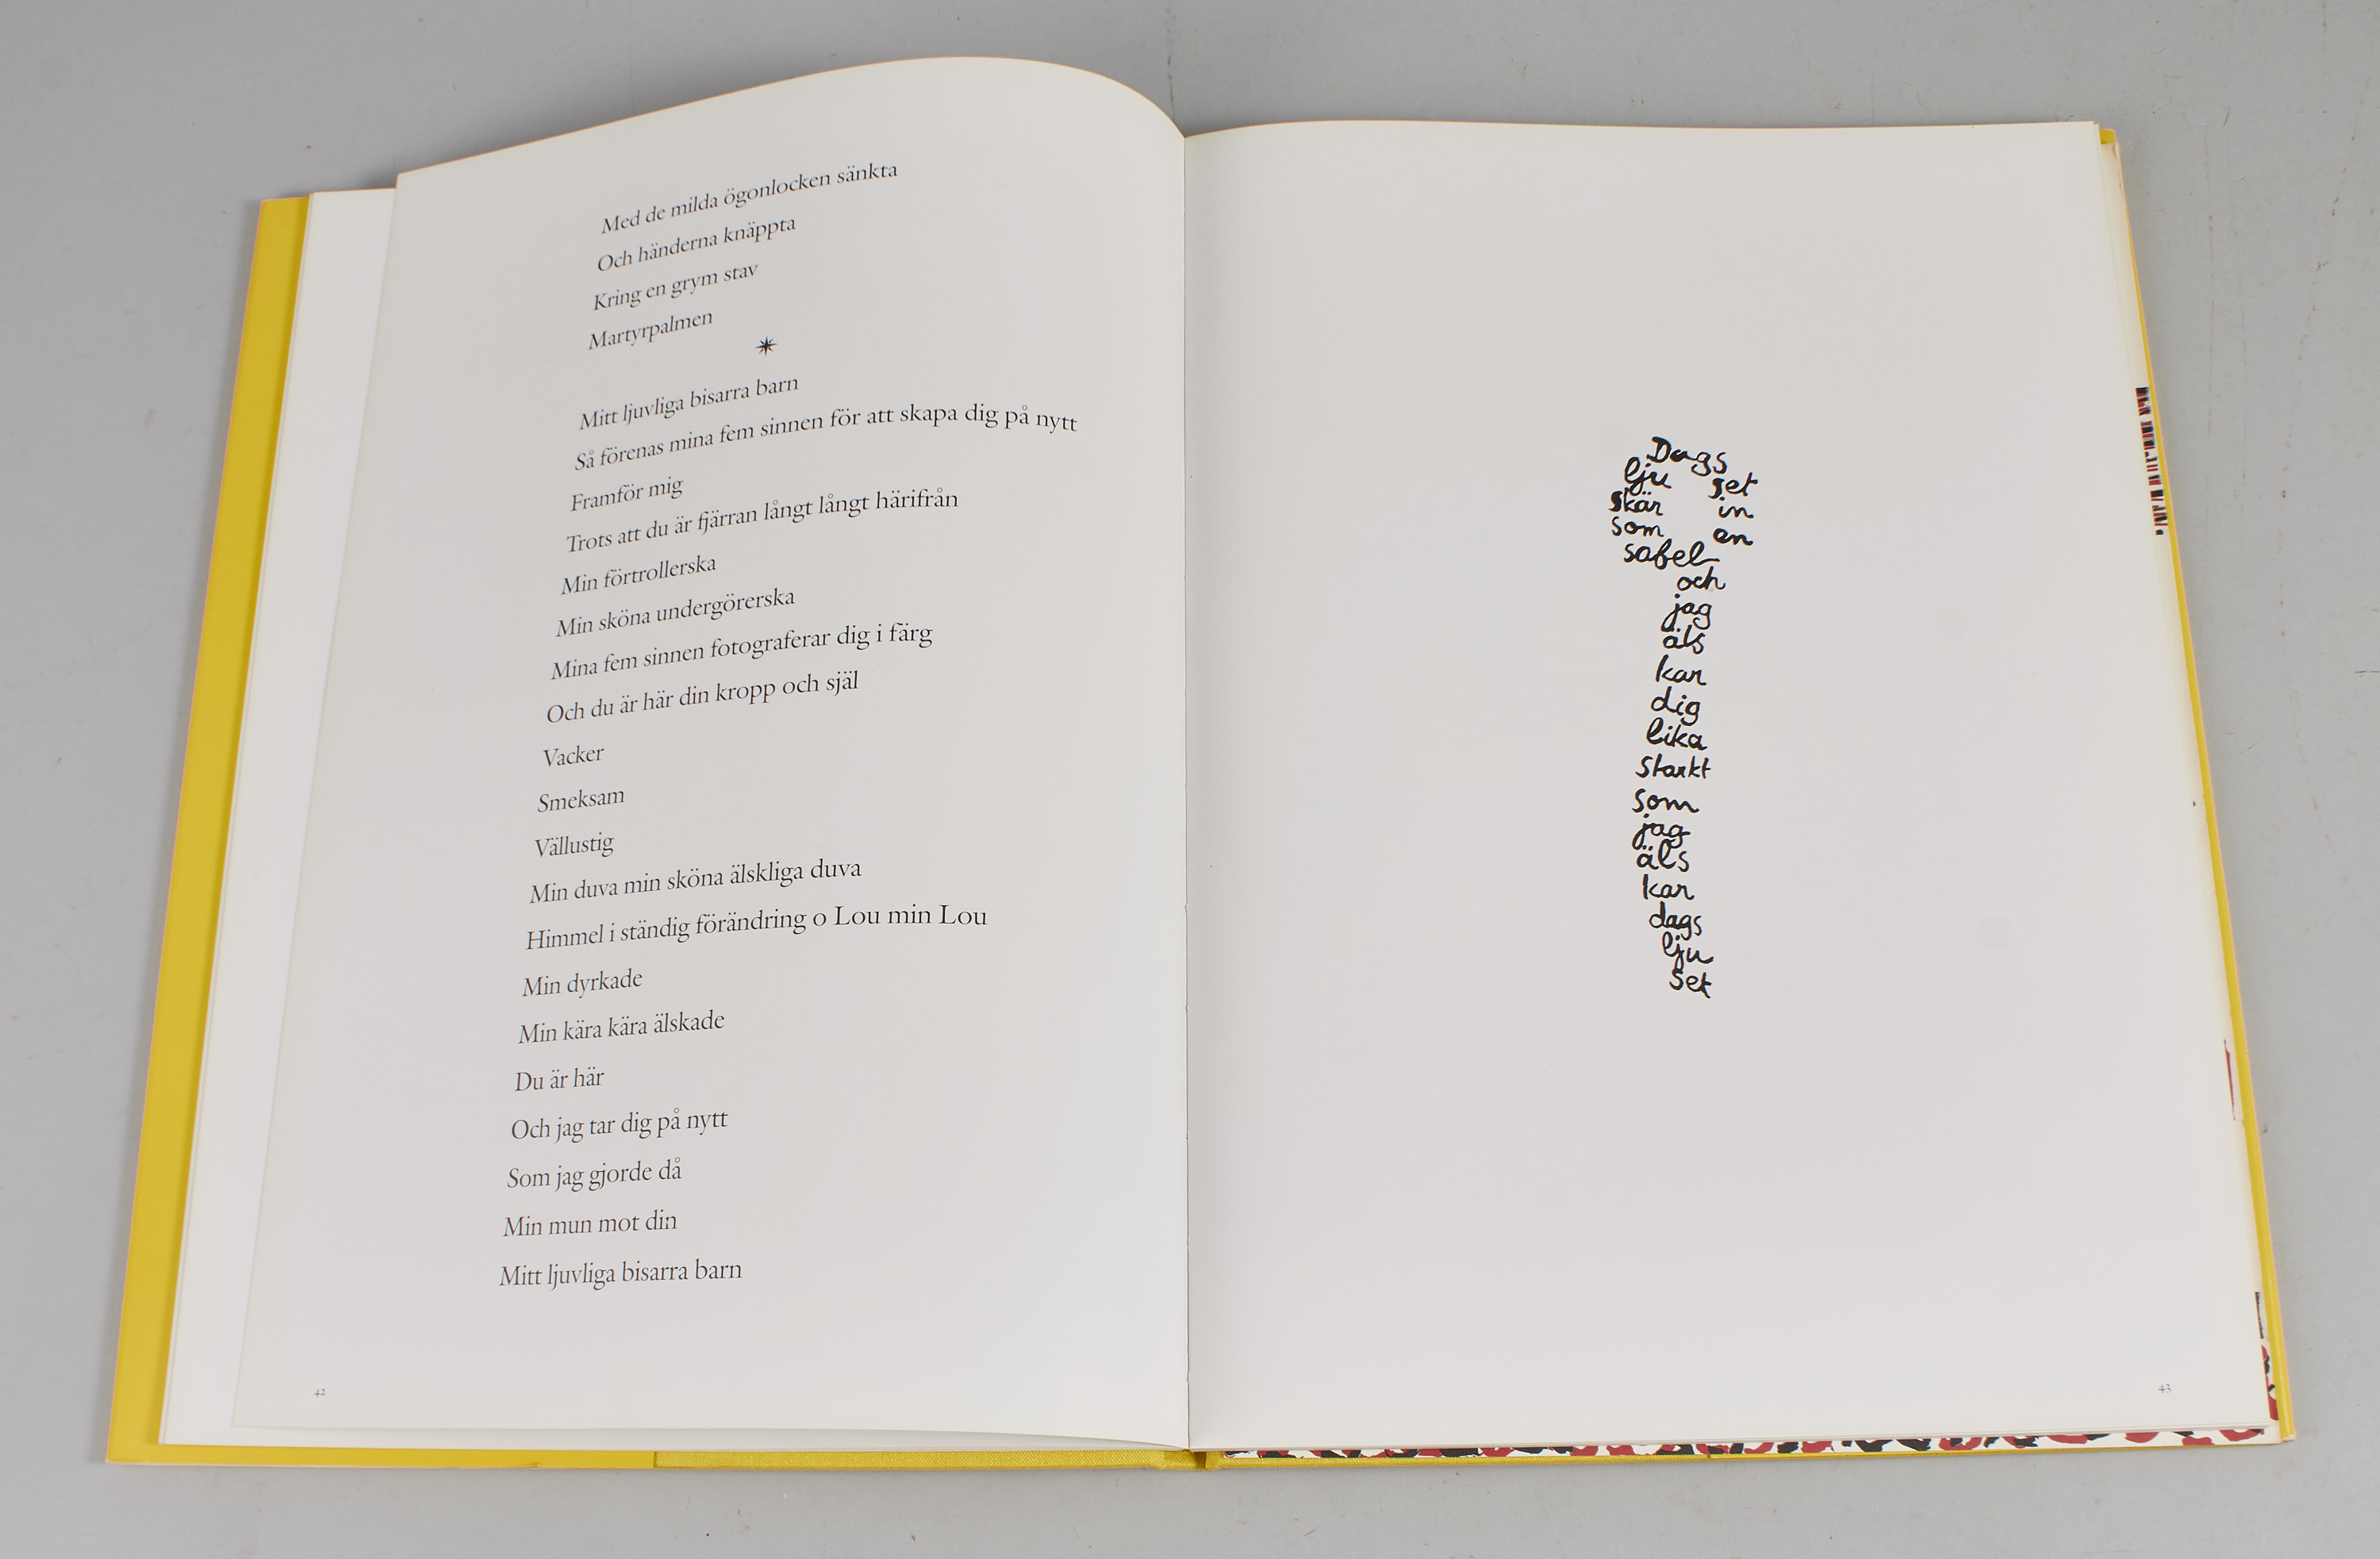 Med de milda ögonlocken sänkta
Och händerna knäppta
Kring en grym stav
Martyrpalmen
Mitt ljuvliga bisarra barn
Så förenas mina fem sinnen för att skapa dig på nytt
Framför mig
Trots att du är fjärran långt långt härifrån
Min förtrollerska
Min sköna undergörerska
Mina fem sinnen fotograferar dig i färg
Och du är här din kropp och själ
Vacker
Smeksam
Vällustig
Min duva min sköna älskliga duva
Himmel i ständig förändring o Lou min Lou
Min dyrkade
Min kära kära älskade
Du är här
Och jag tar dig på nytt
Som jag gjorde då
Min mun mot din
Mitt ljuvliga bisarra barn
42
Dags
lju set
skär in
som en
sabel
och
jag
äls
kar
dig
lika
starkt
som
jag
äls
kar
dags
lju
set
43